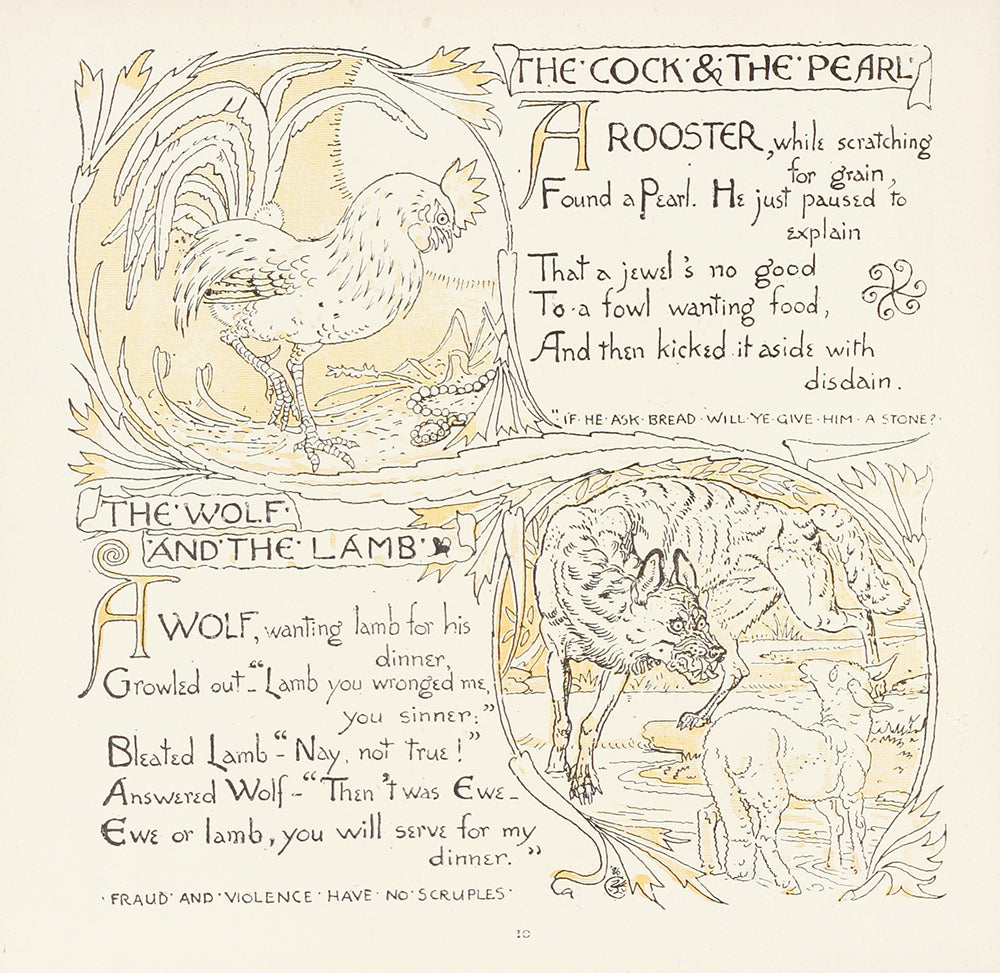 THE·COCK·&·THE·PEARL
A ROOSTER, while scratching
for grain,
Found a Pearl. He just paused to
explain
That a jewel's no good
To a fowl wanting food,
And then kicked it aside with
disdain.
"IF·HE·ASK·BREAD·WILL·YE·GIVE·HIM·A STONE?·
THE·WOLF·
·AND·THE·LAMB·
A WOLF, wanting lamb for his
dinner,
Growled out–"Lamb you wronged me,
you sinner:"
Bleated Lamb–"Nay, not true!"
Answered Wolf–"Then 't was Ewe–
Ewe or lamb, you will serve for my
dinner."
·FRAUD·AND·VIOLENCE·HAVE·NO·SCRUPLES·
10